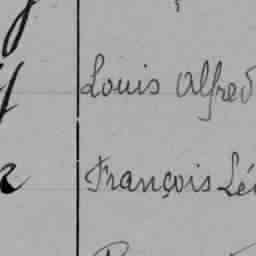 Louis Alfred
François Lé